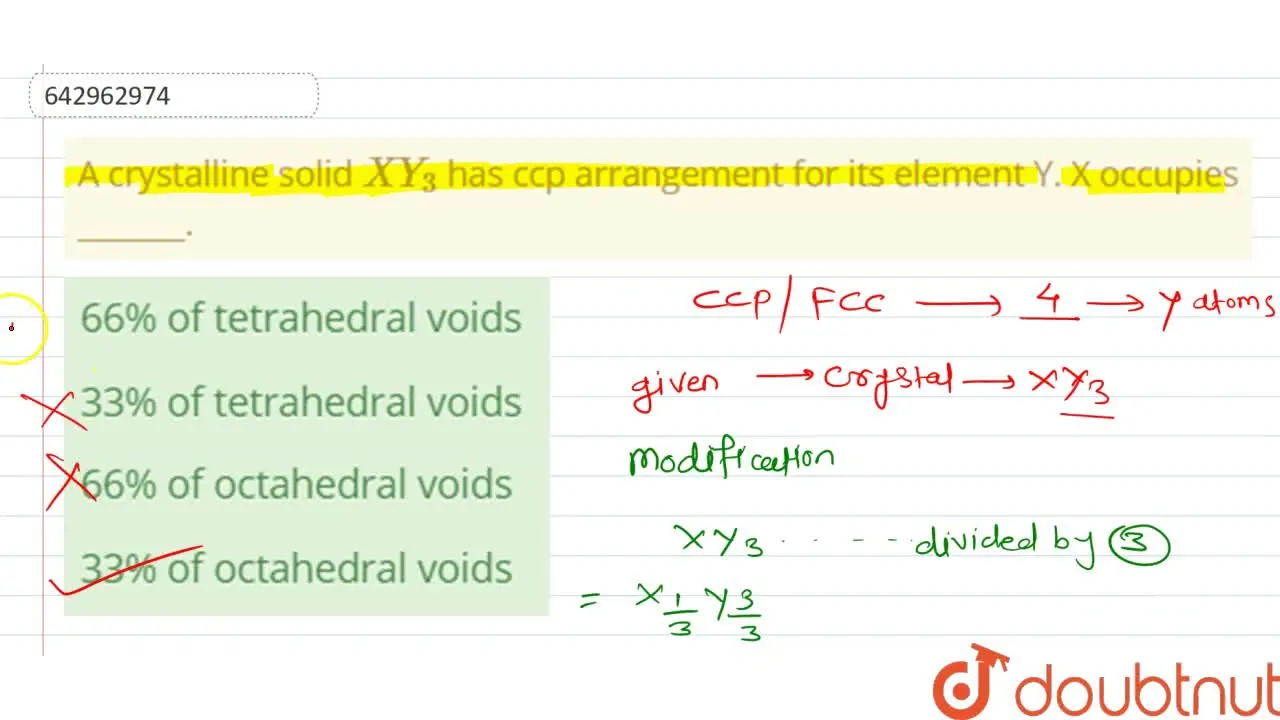 642962974
A crystalline solid XY₃ has ccp arrangement for its element Y. X occupies
________.
66% of tetrahedral voids
33% of tetrahedral voids
66% of octahedral voids
33% of octahedral voids
CCP/ FCC → 4 → Y atoms
given → crystal → XY₃
Modification
XY₃ ...... divided by 3
= X 1/3 Y 3/3
doubtnut